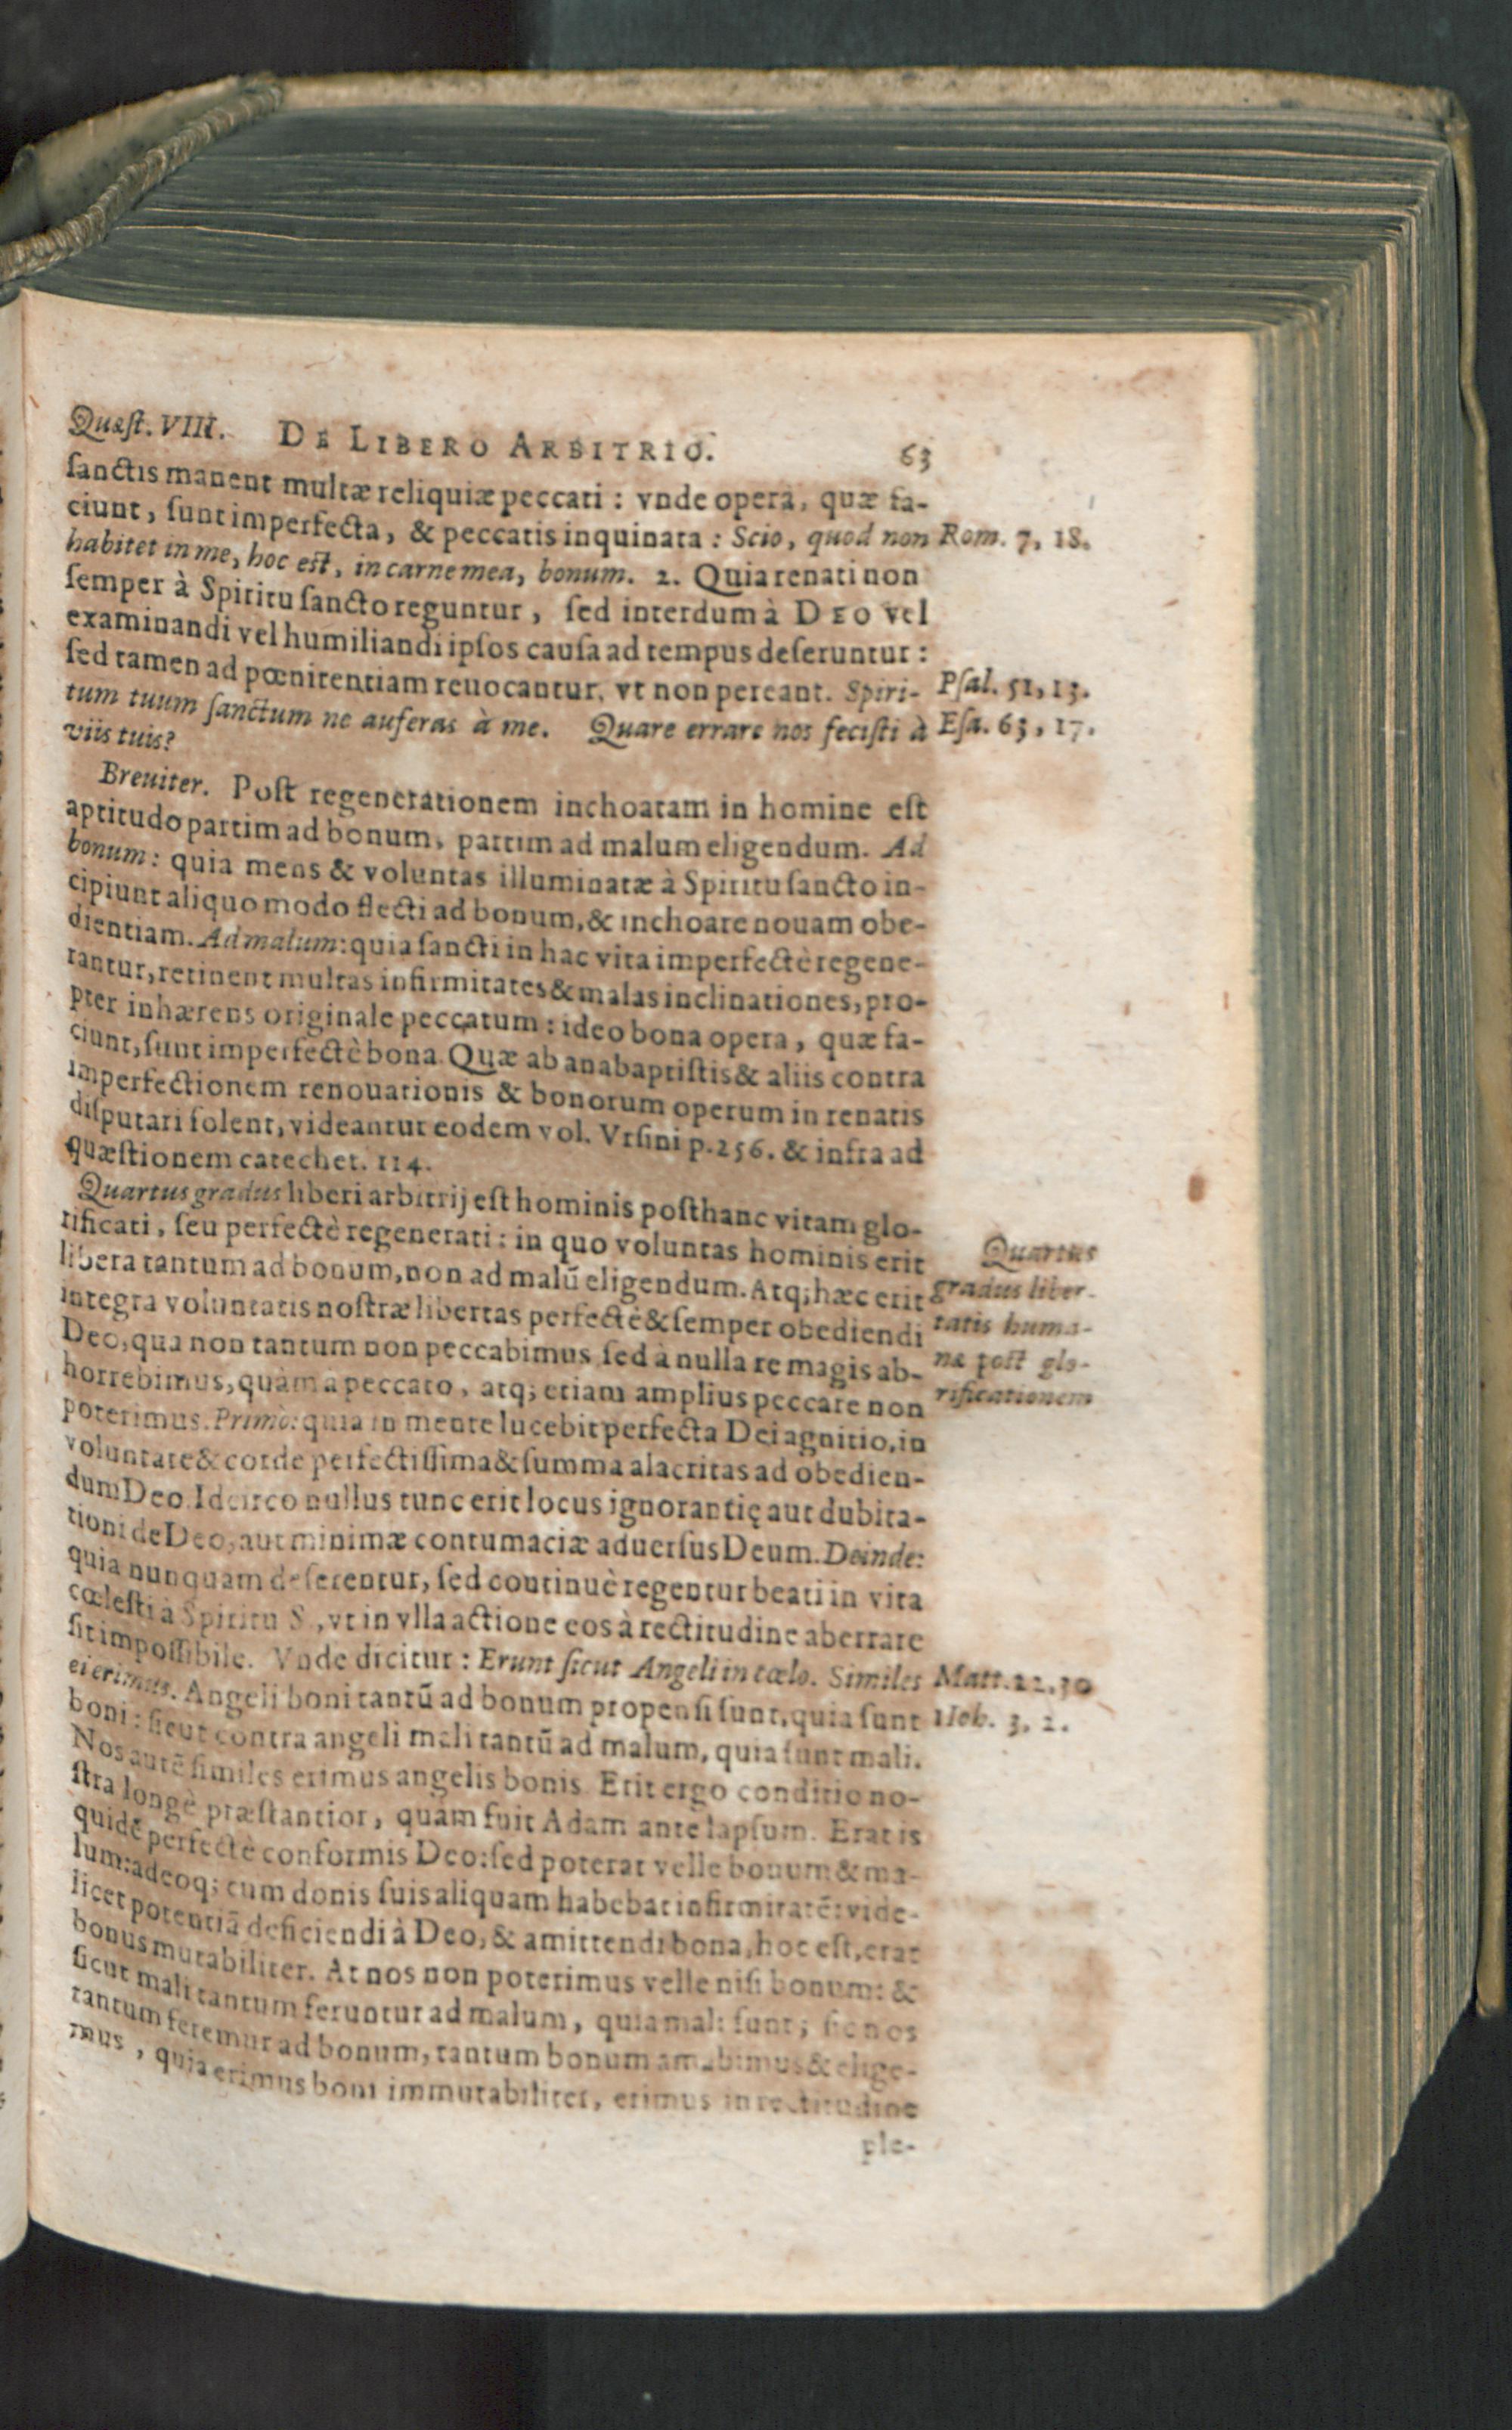 Quæſt. VIII. DE LIBERO ARBITRIO. 63
ſanctis manent multæ reliquiæ peccati : vnde opera, quæ fa-
ciunt, ſunt imperfecta, & peccatis inquinata : Scio, quod non
Rom. 7, 18.
habitet in me, hoc eſt, in carne mea, bonum. 2. Quia renati non
ſemper à Spiritu ſancto reguntur, ſed interdum à DEO vel
examinandi vel humiliandi ipſos cauſa ad tempus deſeruntur :
ſed tamen ad pœnitentiam reuocantur, vt non pereant. Spiri-
Pſal. 51, 13.
tum tuum ſanctum ne auferas à me. Quare errare nos feciſti à
Eſa. 63, 17.
viis tuis?
Breuiter. Poſt regenerationem inchoatam in homine eſt
aptitudo partim ad bonum, partim ad malum eligendum. Ad
bonum: quia mens & voluntas illuminatæ à Spiritu ſancto in-
cipiunt aliquo modo flecti ad bonum, & inchoare nouam obe-
dientiam. Ad malum: quia ſancti in hac vita imperfectè regene-
rantur, retinent multas infirmitates & malas inclinationes, pro-
pter inhærens originale peccatum : ideo bona opera, quæ fa-
ciunt, ſunt imperfectè bona. Quæ ab anabaptiſtis & aliis contra
imperfectionem renouationis & bonorum operum in renatis
diſputari ſolent, videantur eodem vol. Vrſini p. 256. & infra ad
quæſtionem catechet. 114.
Quartus gradus liberi arbitrij eſt hominis poſt hanc vitam glo-
rificati, ſeu perfectè regenerati : in quo voluntas hominis erit
Quartus
libera tantum ad bonum, non ad malū eligendum. Atq; hæc erit
gradus liber-
integra voluntatis noſtræ libertas perfectè & ſemper obediendi
tatis huma-
Deo, qua non tantum non peccabimus ſed à nulla re magis ab-
næ poſt glo-
horrebimus, quàm a peccato, atq; etiam amplius peccare non
rificationem
poterimus. Primò: quia in mente lucebit perfecta Dei agnitio, in
voluntate & corde perfectiſſima & ſumma alacritas ad obedien-
dum Deo. Idcirco nullus tunc erit locus ignorantię aut dubita-
tioni de Deo, aut minimæ contumaciæ aduerſus Deum. Deinde:
quia nunquam deſerentur, ſed continuè regentur beati in vita
cœleſti à Spiritu S., vt in vlla actione eos à rectitudine aberrare
ſit impoſſibile. Vnde dicitur : Erunt ſicut Angeli in cœlo. Similes
Matt. 22. 30
ei erimus. Angeli boni tantū ad bonum propenſi ſunt, quia ſunt
1 Ioh. 3, 2.
boni : ſicut contra angeli mali tantū ad malum, quia ſunt mali.
Nos autē ſimiles erimus angelis bonis. Erit ergo conditio no-
ſtra longè præſtantior, quàm fuit Adam ante lapſum. Erat is
quidē perfectè conformis Deo: ſed poterat velle bonum & ma-
lum: adeoq; cum donis ſuis aliquam habebat infirmitatē: vide-
licet potentiā deficiendi à Deo, & amittendi bona, hoc eſt, erat
bonus mutabiliter. At nos non poterimus velle niſi bonum: &
ſicut mali tantum feruntur ad malum, quia mali ſunt; ſic nos
tantum feremur ad bonum, tantum bonum amabimus & elige-
mus, quia erimus boni immutabiliter, erimus in rectitudine
ple-